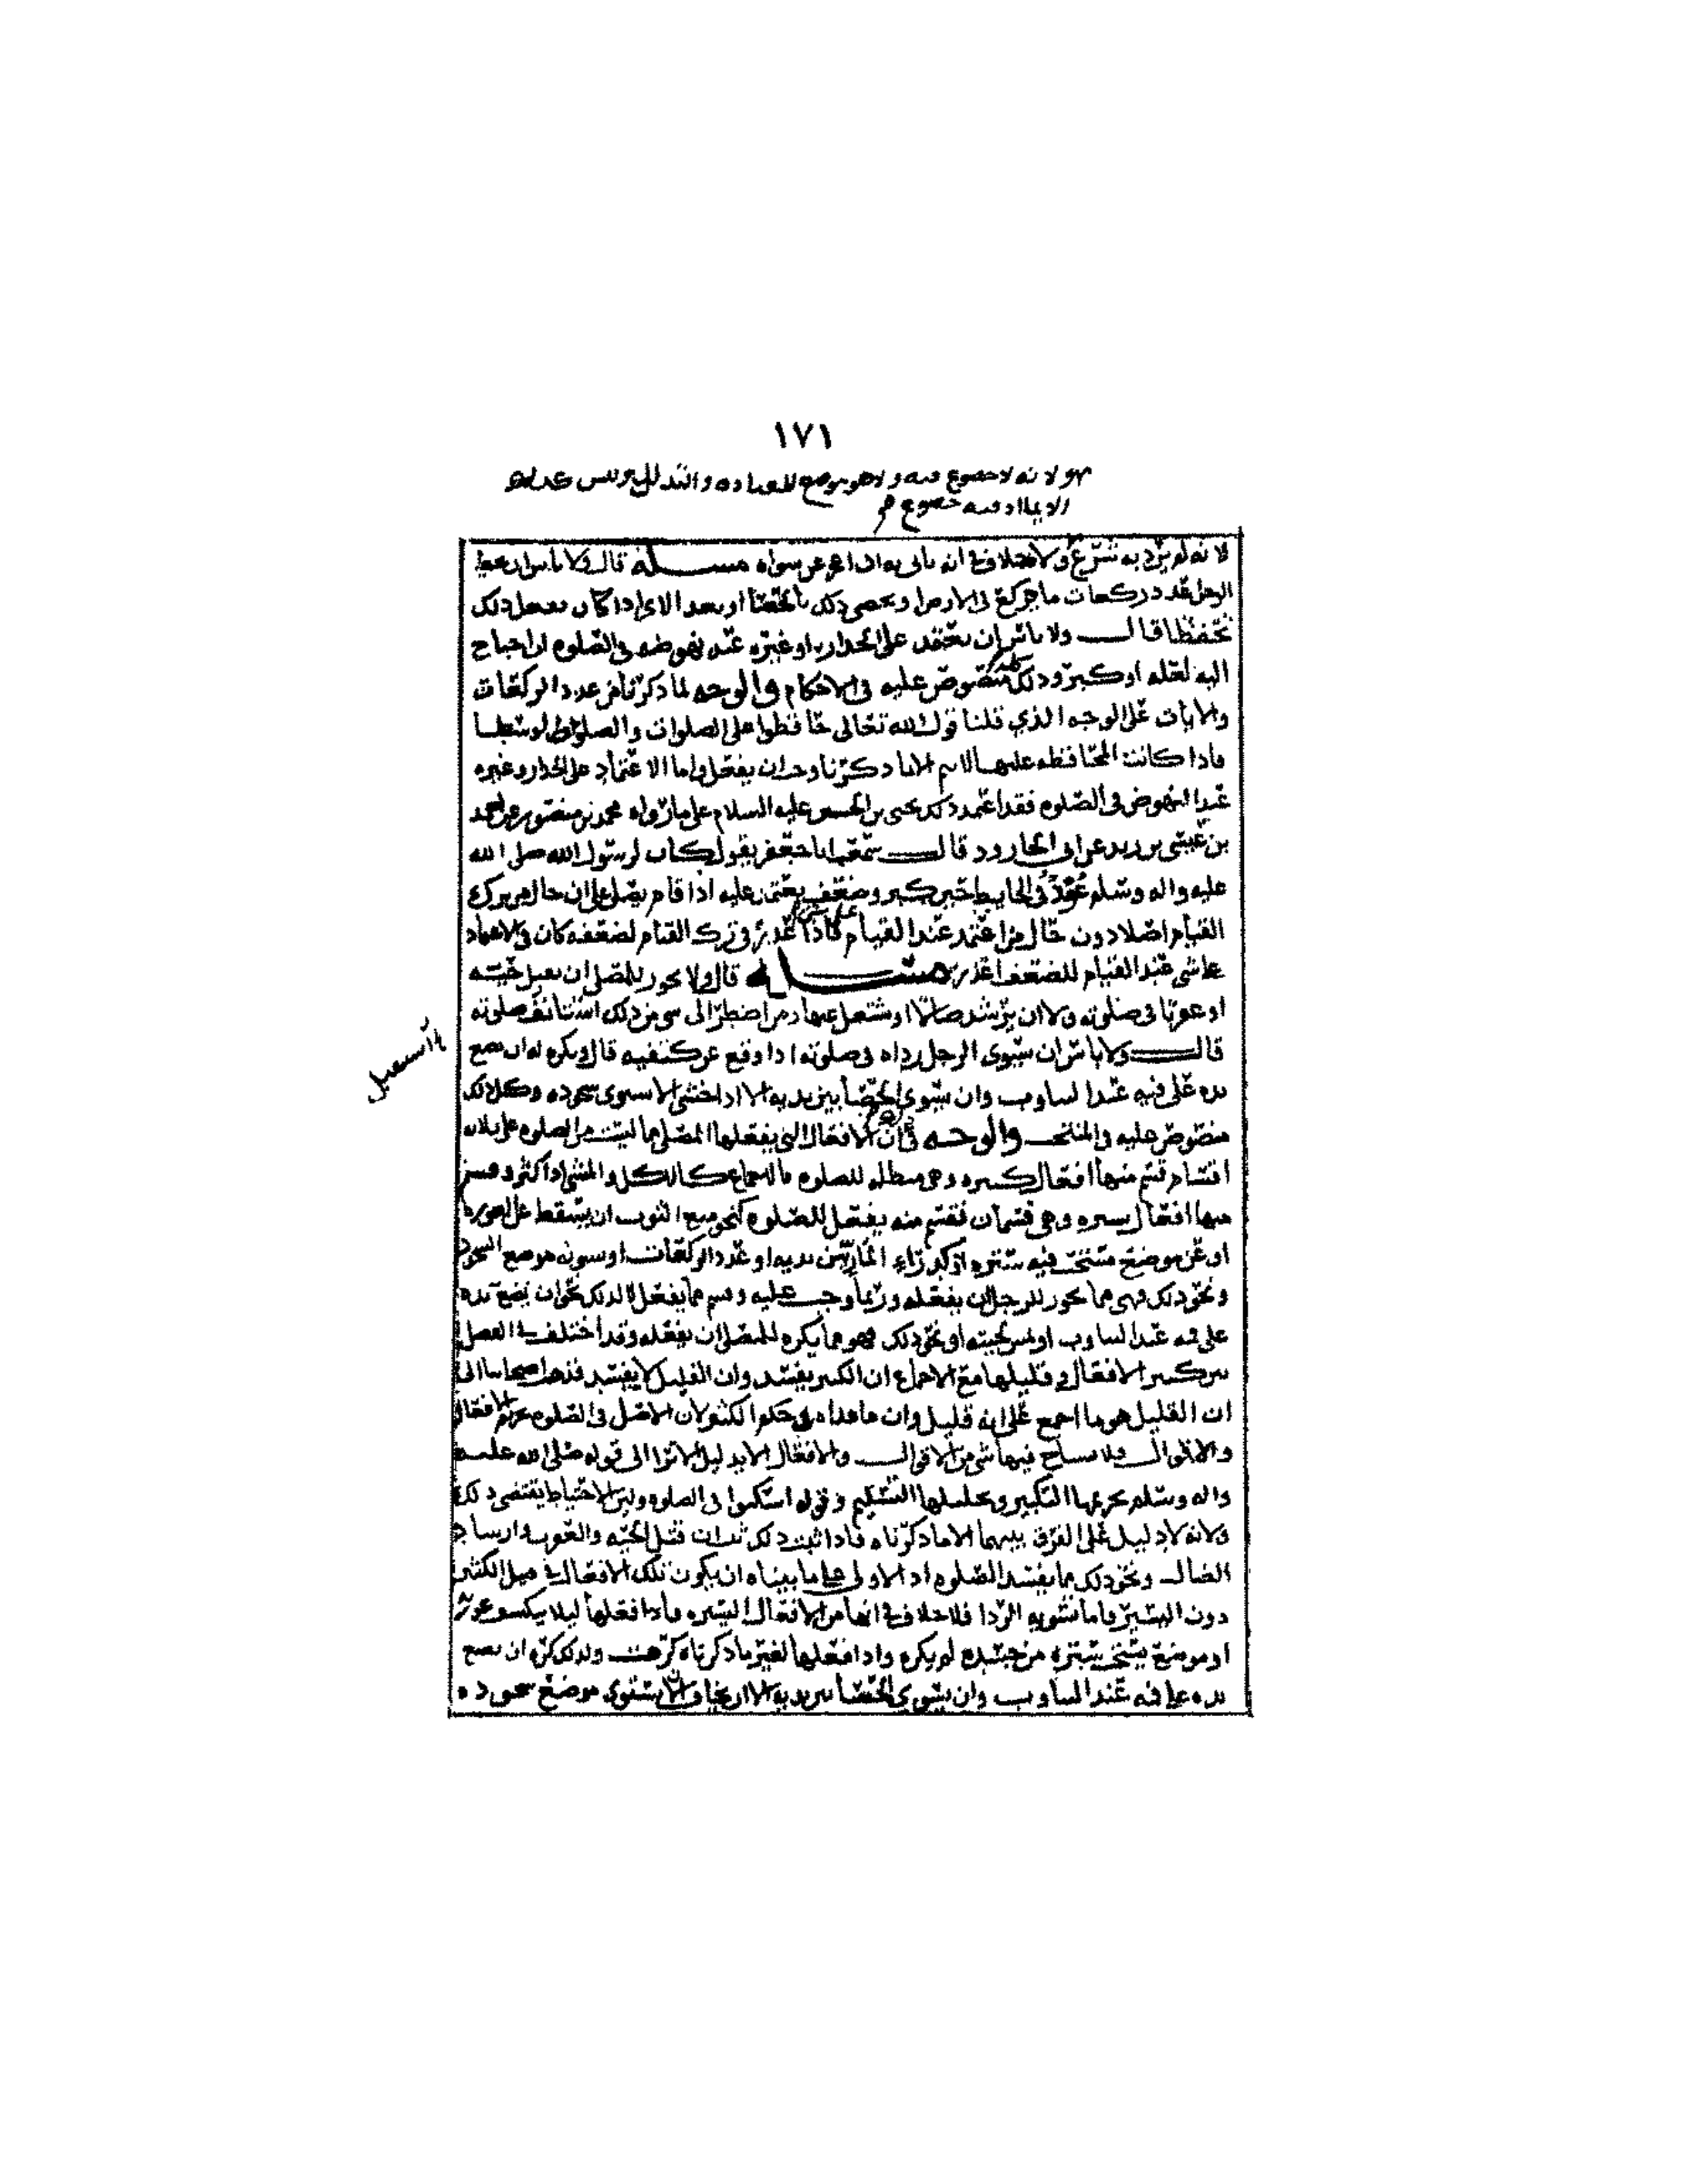 ١٧١
هو لانه لاخضوع فيه ولا هو موضع للعباده والتذلل وليس كذلك
الايما اذ فيه خضوع
لانه لم يرد به شرع ولا خلاف في انه ياتي به اذا عجز عن سواه مسئله قال ولا باس ان يحفظ
الرجل عدد ركعات ما يركع في الارض وبحصى ذلك بالحصا او بعد الاي اذا كان يفعل ذلك
تحفظا قال ولا باس ان يعتمد على الجدار او غيره عند نهوضه في الصلوه ان احتاج
اليه لعله او كبر وذلك كله منصوص عليه في الاحكام والوجه لما ذكرنا من عدد الركعات
والايات على الوجه الذي قلنا قول الله تعالى حافظوا على الصلوات والصلوه الوسطى
فاذا كانت المحافظه عليها لا تتم الا بما ذكرنا وجب ان يفعل واما الاعتماد على الجدار وغيره
عند النهوض في الصلوه فقد اعتمد ذلك يحيى بن الحسين عليه السلام على ما رواه محمد بن منصور عن احمد
بن عيسى بن زيد عن ابي الجارود قال سمعت ابا جعفر يقول كان لرسول الله صلى الله
عليه واله وسلم عود في الحايط حين كبر وضعف يعتمد عليه اذا قام يصلي على ان حال من يترك
القيام اصلا دون حال من اعتمد عند القيام على شي فاذا عذر في ترك القيام لضعفه كان في الاعتماد
على شي عند القيام للضعف اعذر مسئله قال ولا يجوز للمصلي ان يقتل حيته
او عقربا في صلوته ولا ان يرشد ضالا او يشتغل بغيرها ومن اضطر الى شي من ذلك استانف صلوته
قال ولا باس ان يسوي الرجل رداه في صلوته اذا وقع عن كتفيه قال ويكره له ان يضع
يده على فيه عند التثاوب وان يسوي الحصا بين يديه الا اذا خشي الا يستوي سجوده وكل ذلك
منصوص عليه في المنتخب والوجه في ذلك ان الافعال التي يفعلها المصلي مما ليست من الصلوه على ثلاثه
اقسام قسم منها افعال كثيره وهي مبطله للصلوه بالاجماع كالاكل والمشي اذا كثر وقسم
منها افعال يسيره وهي قسمان فقسم منه يفعل للصلوه نحو منع الثوب ان يسقط عن العوره
او عن موضع يستحب فيه ستره او كدراء المار بين يديه او عدد الركعات او تسويه موضع السجود
ونحو ذلك فهي مما يجوز للرجل ان يفعله وربما وجب عليه وقسم مما يفعل لا لذلك نحو ان يضع يده
على فيه عند التثاوب او لمس لحيته او نحو ذلك فهو مما يكره للمصلي ان يفعله وقد اختلف في الفصل
بين كثير الافعال وقليلها مع الاجماع ان الكثير يفسد وان القليل لا يفسد فذهب اصحابنا الى
ان القليل هو ما اجمع على انه قليل وان ما عداه في حكم الكثير لان الاصل في الصلوه تحريم الافعال
والاقوال فلا يستباح فيها شي من الاقوال والافعال الا بدليل الا ترا الى قوله صلى الله عليه
واله وسلم تحريمها التكبير وتحليلها التسليم وقوله اسكنوا في الصلوه ولان الاحتياط يقتضي ذلك
ولانه لا دليل على الفرق بينهما الا ما ذكرناه فاذا ثبت ذلك ثبت ان قتل الحيه والعقرب وارشاد
الضال ونحو ذلك مما يفسد الصلوه اذ الاولى على ما بيناه ان يكون تلك الافعال في حيز الكثير
دون اليسير واما تسويه الردا فلا خلاف في انها من الافعال اليسيره فاذا فعلها ليلا ينكشف عورته
او موضع يستحب ستره من جسده لم يكره واذا فعلها لغير ما ذكرناه كرهت وكذلك كره ان يضع
يده على فيه عند التثاوب وان يسوي الحصا بين يديه الا ان يخاف الا يستوي موضع سجوده